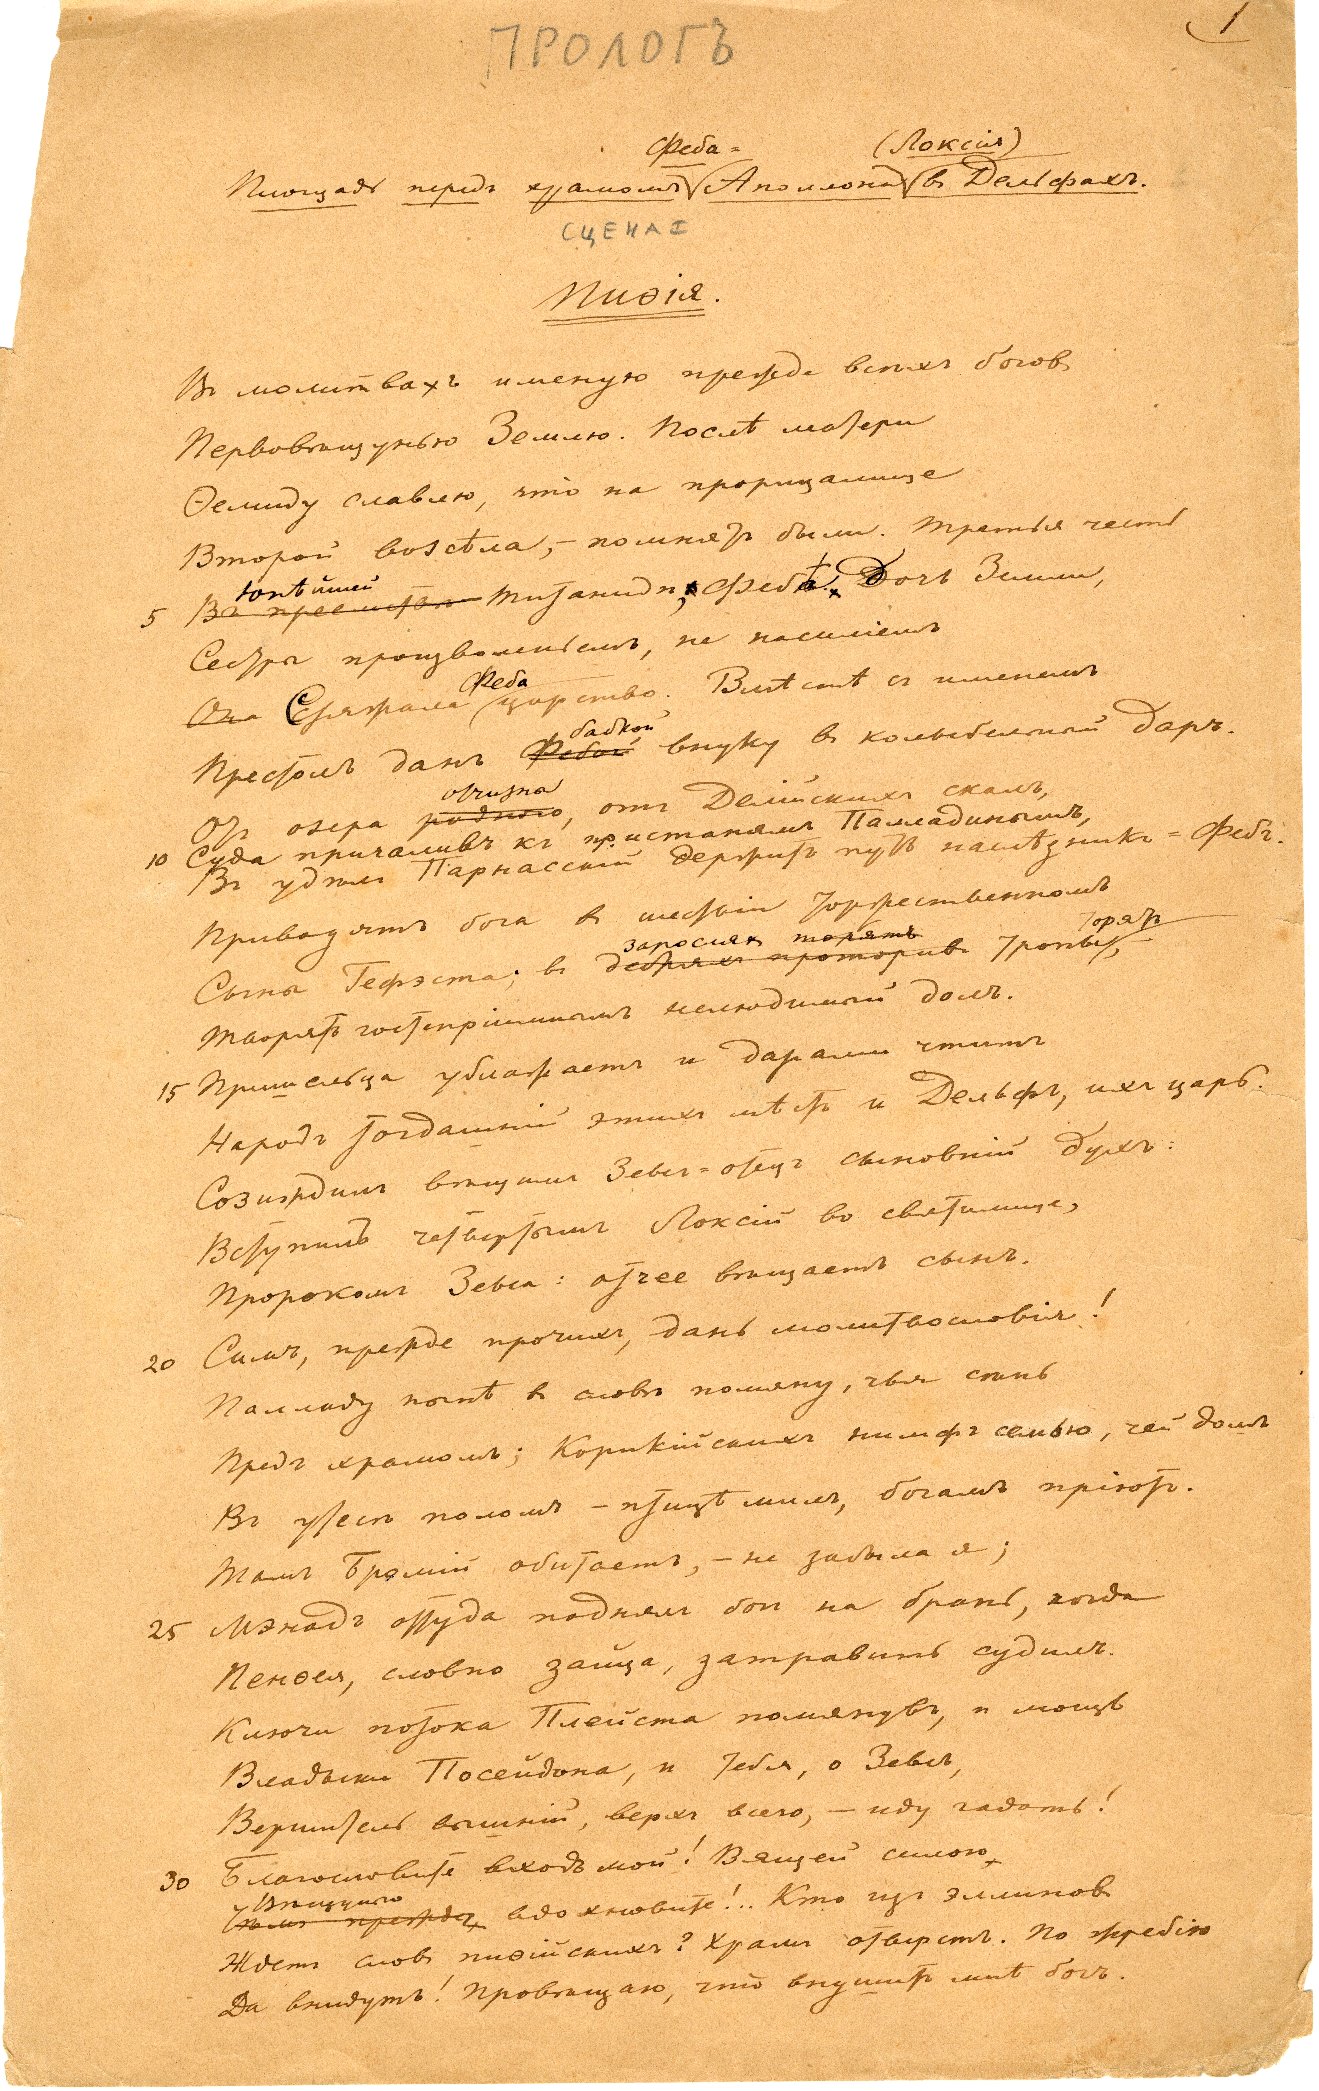 1
ПРОЛОГЪ
Феба- (Локсія)
Площадь передъ храмомъ Аполлона въ Дельфахъ.
СЦЕНА I
Пиѳія.
Въ молитвахъ именую прежде всѣхъ боговъ
Первовѣщунью Землю. Послѣ матери
Ѳемиду славлю, что на прорицалище
Второй возсѣла, – помнятъ были. Третья честь
юнѣйшей
5 Въ преемствѣ Титанидѣ, Фебѣ. Дочь Земли,
Сестры произволеньемъ, не насиліемъ
Феба
Она Стяжала царство. Вмѣстѣ съ именемъ
бабкой
Престолъ данъ Фебой внуку въ колыбельный даръ.
отчизна
Отъ озера родного, отъ Делійскихъ скалъ,
10 Суда причаливъ къ пристанямъ Палладинымъ,
Въ удѣлъ Парнасскій держитъ путь наслѣдникъ-Фебъ.
Приводятъ бога въ шествіи торжественномъ
заросляхъ торятъ торятъ
Сыны Гефэста; въ дебряхъ проторивъ тропы,
Творятъ гостепріимнымъ нелюдимый долъ.
15 Пришельца ублажаетъ и дарами чтитъ
Народъ тогдашній этихъ мѣстъ и Дельфъ, ихъ царь.
Созиждилъ вѣщимъ Зевсъ-отецъ сыновній духъ:
Вступилъ четвертымъ Локсій во святилище,
Пророкомъ Зевса: отчее вѣщаетъ сынъ.
20 Симъ, прежде прочихъ, дань молитвословія!
Палладу нынѣ въ словѣ помяну, чья сѣнь
Предъ храмомъ; Корикійскихъ нимфъ семью, чей домъ
Въ утесѣ поломъ – птицѣ милъ, богамъ пріютъ.
Тамъ Бромій обитаетъ, – не забыла я;
25 Мэнадъ оттуда поднялъ богъ на брань, когда
Пенѳея, словно зайца, затравить судилъ.
Ключи потока Плейста помянувъ, и мощь
Владыки Посейдона, и тебя, о Зевсъ,
Вершитель вышній, верхъ всего, – иду гадать!
30 Благословите входъ мой! Вящей силою,
Чѣмъ прежде, вдохновите!.. Кто изъ эллиновъ
Ждетъ словъ пиѳійскихъ? Храмъ отверстъ. По жребію
Да внидутъ! Провѣщаю, что внушитъ мнѣ богъ.